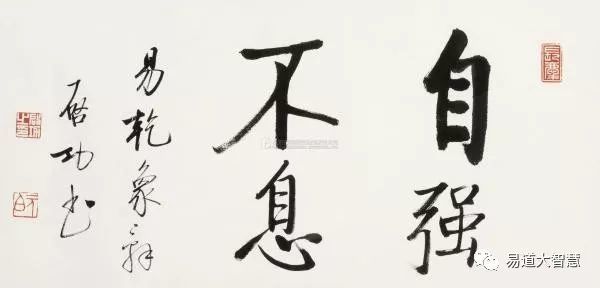 自强
不息
易乾象辞
启功书
易道大智慧